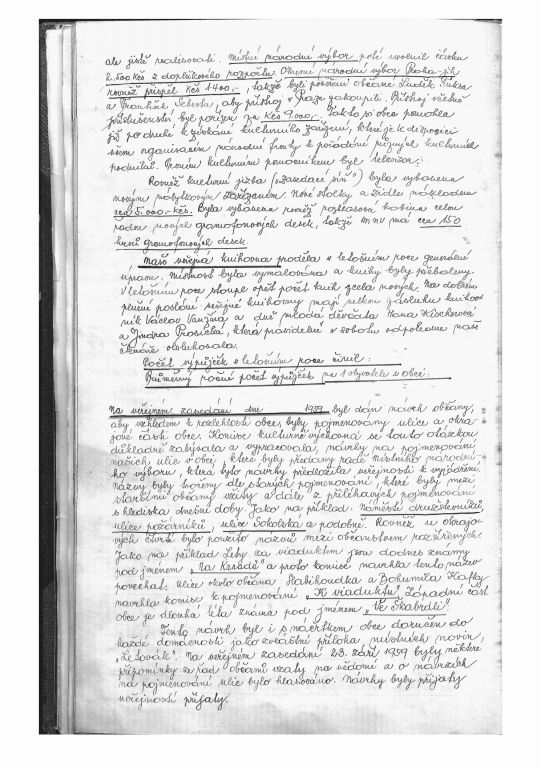 ale jistě realisovati. Místní národní výbor poté uvolnil částku
2.500 Kčs z doplňkového rozpočtu. Okresní národní výbor Praha-jih
rovněž přispěl Kčs 1400,-, takže byli pověřeni občané Luděk Fuksa
a František Sebesta, aby přístroj v Praze zakoupili. Přístroj včetně
příslušenství byl pořízen za Kčs 9000,-. Tak to si obec pomohla
již po druhé k získání kulturního zařízení, které je k disposici
všem organisacím národní fronty k pořádání různých kulturních
podniků. Prvním kulturním pomocníkem byl televisor.
Rovněž kulturní jizba ("zasedací síň") byla vybavena
novým nábytkovým zařízením. Nové stolky a židle nákladem
cca 5.000.- Kčs. Byla vybavena rovněž rozhlasová kabina celou
řadou nových gramofonových desek, takže MNV má cca 150
kusů gramofonových desek.
Naše veřejná knihovna prošla v letošním roce generální
úpravou. Místnost byla vymalována a knihy byly přebaleny.
V letošním roce stoupl opět počet knih zcela nových. Na dobrém
plnění poslání veřejné knihovny mají velkou zásluhu knihov
ník Václav a dvě mladá děvčata Hana
a Jindra, která pravidelně v sobotu odpoledne naše
čtenáře obsluhovala.
Počet výpůjček v letošním roce činil:
Průměrný roční počet výpůjček na 1 obyvatele v obci:
Na veřejném zasedání dne 1959 byl dán návrh občany,
aby vzhledem k rozlehlosti obce, byly pojmenovány ulice a okra
jové části obce. Komise kulturně výchovná se touto otázkou
důkladně zabývala a vypracovala, návrhy na pojmenování
našich ulic v obci, které byly předány radě místního národní
ho výboru, která tyto návrhy předložila veřejnosti k vyjádření.
Názvy byly tvořeny dle starých pojmenování, které byly mezi
staršími občany vžity a dále z přiléhavých pojmenování
s hlediska dnešní doby. Jako na příklad: Náměstí družstevníků,
ulice požárníků, ulice Sokolská a podobně. Rovněž u okrajo-
vých čtvrtí bylo použito názvů mezi občanstvem rozšířených.
Jako na příklad Lehy za viaduktem jsou dodnes známy
pod jménem "Na Kanadě" a proto komise navrhla tento název
ponechat. Ulice okolo občana a Bohumila Kafky
navrhla komise k pojmenování "K viaduktu". Západní část
obce je dlouhá léta známa pod jménem "Ve Skabrdli".
Tento návrh byl i s náčrtkem obce doručen do
každé domácnosti jako zvláštní příloha místních novin,
"Zetovák". Na veřejném zasedání 23. září 1959 byly některé
připomínky z řad občanů vzaty na vědomí a o návrzích
na pojmenování ulic bylo hlasováno. Návrhy byly přijaty
veřejností přijaty.